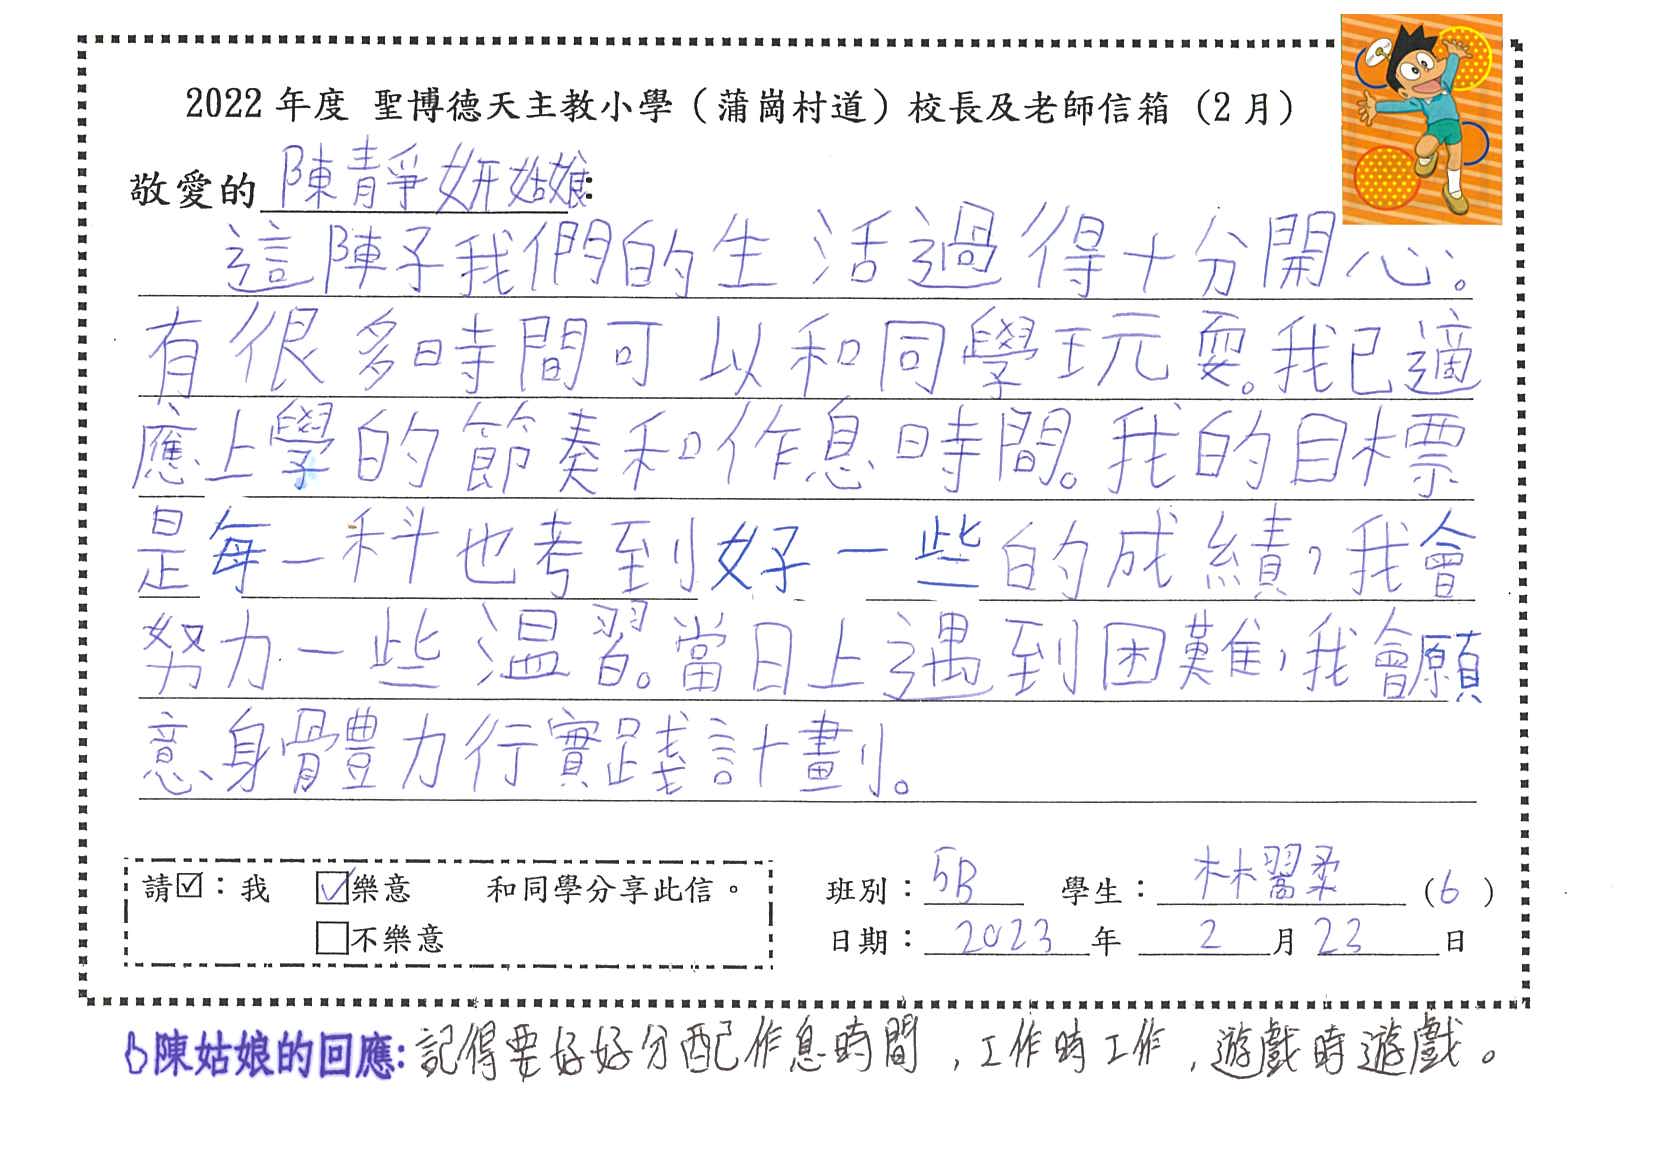 2022 年度 聖博德天主教小學（蒲崗村道）校長及老師信箱（2 月）
敬愛的 陳靜妍姑娘:
這陣子我們的生活過得十分開心。
有很多時間可以和同學玩耍。我已適
應上學的節奏和作息時間。我的目標
是每一科也考到好一些的成績，我會
努力一些溫習。當日上遇到困難，我會願
意身體力行實踐計劃。
請☑：我 ☑樂意 和同學分享此信。
□不樂意
班別：5B 學生：林翯柔（6）
日期：2023年 2 月 23 日
陳姑娘的回應:記得要好好分配作息時間，工作時工作，遊戲時遊戲。